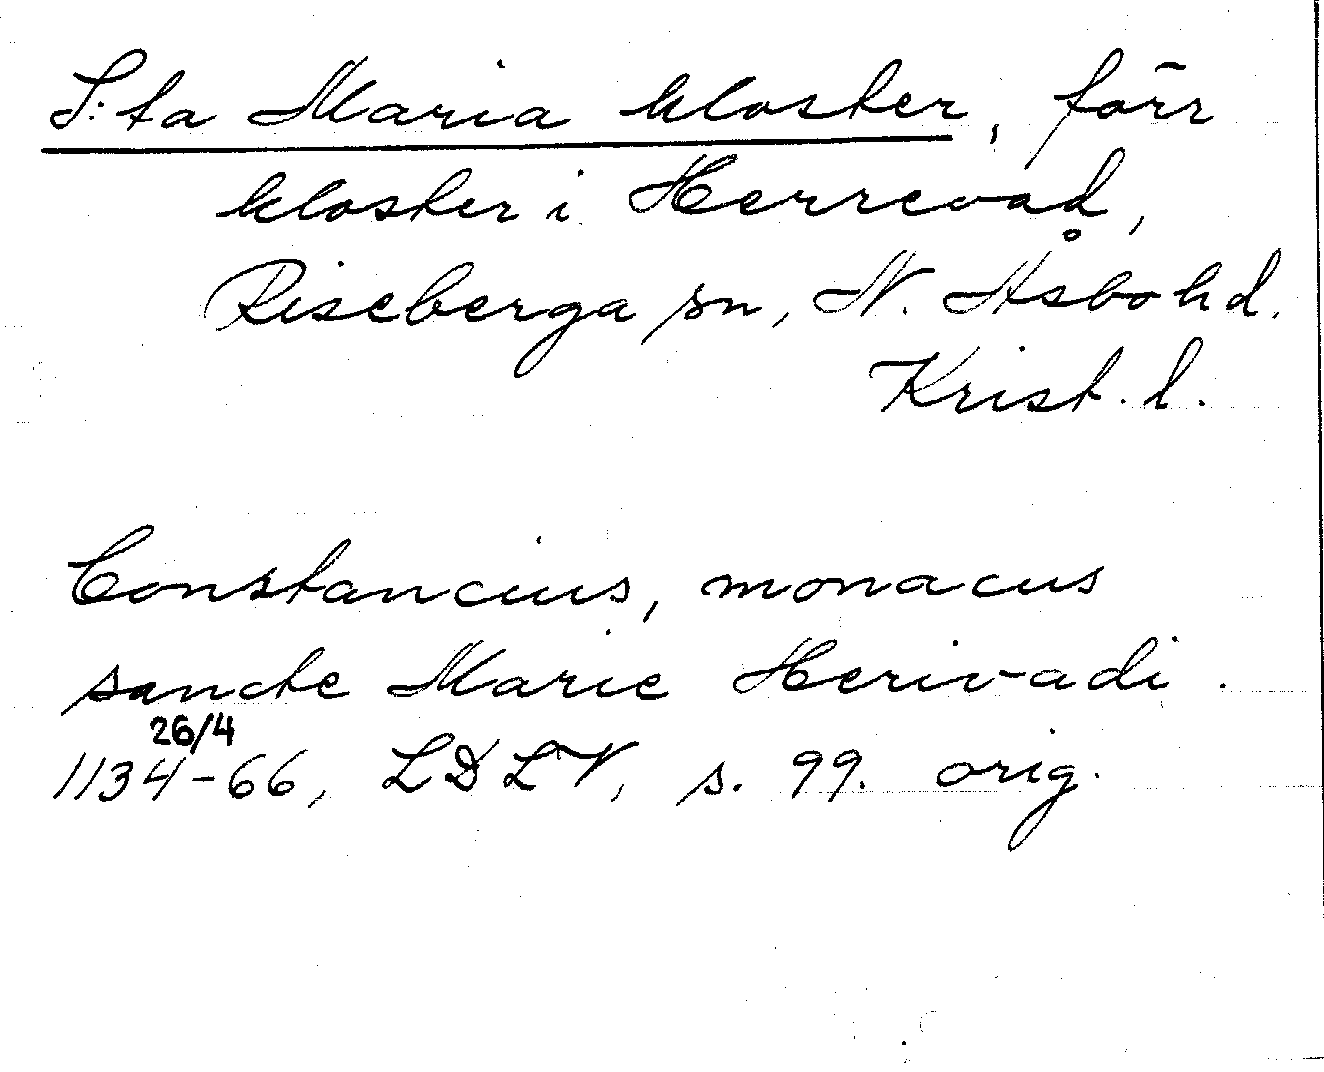 S:ta Maria kloster, förr
kloster i Herrevad,
Riseberga sn, N. Åsbo hd.
Krist. l.
Constancius, monacus
sancte Marie Herivadi.
26/4
1134-66, LDLV, s. 99. orig.